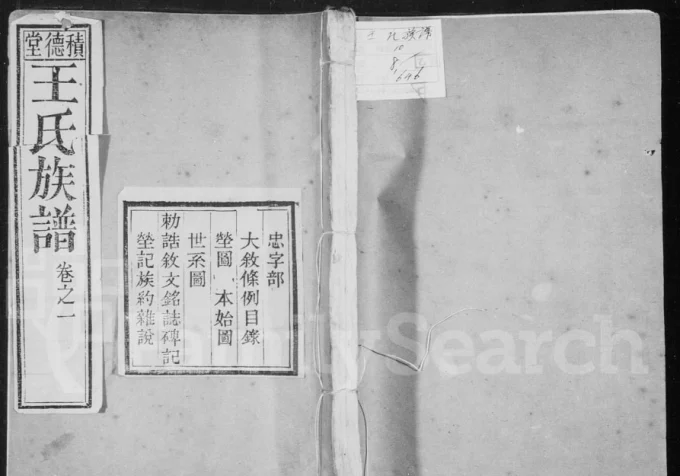 積德堂
王氏族譜 卷之一
忠字部
大敘條例目錄
塋圖 本始圖
世系圖
勅誥敘文銘誌碑記
塋記族約雜說
10
8
696
FamilySearch